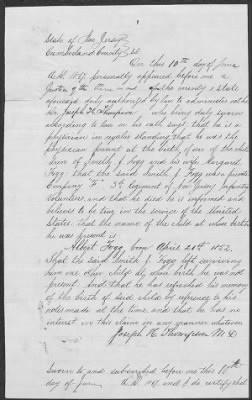 State of New Jersey
Cumberland County, SS.
On this 10th day of June
A.D. 1867, personally appeared before me a
Justice of the Peace in and of the county & state
aforesaid duly authorized by law to administer oaths
Joseph H. Thompson who being duly sworn
according to law on his oath says that he is a
physician in regular standing that he was the
physician present at the birth, of one of the child
dren of Smith J. Fogg and his wife Margaret
Fogg. that the said Smith J. Fogg was a private
Company "F" 3d Regiment of New Jersey Infantry
Volunteers, and that he died he is informed and
believes to be true in the service of the United
States, that the name of the child at whose birth
he was present is
Albert Fogg, born April 21st 1852.
That the said Smith J. Fogg left surviving
him one other child at whose birth he was not
present. And that he has refreshed his memory
of the birth of said child by reference to his
notes made at the time and that he has no
interest in this claim in any manner whatever
Joseph H. Thompson M.D
Sworn to and subscribed before me this 10th
day of June A.D. 1867, and I do certify that